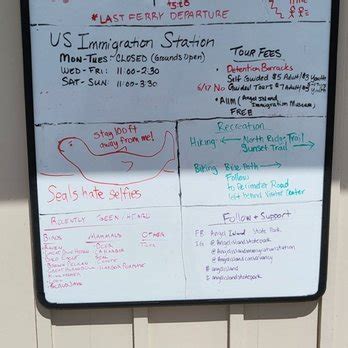 5:20
*LAST FERRY DEPARTURE
US Immigration Station
Mon-Tues: Closed (Grounds Open)
Wed-Fri: 11:00-2:30
Sat-Sun: 11:00-3:30
Tour Fees
• Detention Barracks
Self Guided $5 Adult/$3 Youth
5/17 No Guided Tours $7 Adult/$5
• AIIM (Angel Island
Immigration Museum)
FREE
Stay 100ft
away from me!
Seals hate selfies
Recreation
Hiking North Ridge Trail
Sunset Trail
Biking Bike Path
Follow
to Perimeter Road
left behind Visitor Center
Recently Seen/Heard
Birds
Raven
Great Blue Heron
Brown Pelican
Mammals
Deer
Seal
Coyote
Harbor Porpoise
Other
Follow & Support
FB Angel Island State Park
IG @angelislandstatepark
@angelislandimmigrationstation
@angelislandconservancy
#angelisland
#angelislandstatepark